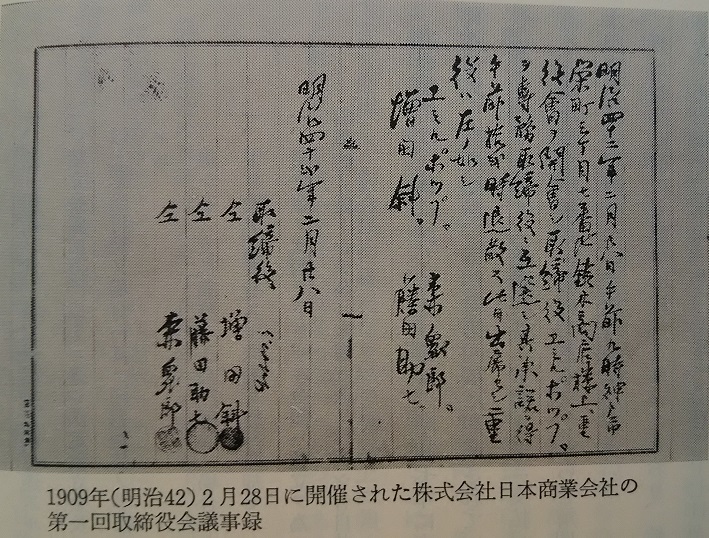 明治四十二年二月廿八日午前九時神戸市
栄町三丁目七番地鈴木商店楼上ニ重
役會ヲ開會シ取締役エミルポップ。
ヲ専務取締役ニ互選シ其承諾ヲ得
午前拾弐時退散ス此日出席セシ重
役ハ左ノ如シ
エミルポップ。 桒象郎。
増田斜。 藤田助七。
明治四十弐年二月廿八日
取締役
仝 増田斜
仝 藤田助七
仝 桒象郎
1909年(明治42)2月28日に開催された株式会社日本商業会社の
第一回取締役会議事録